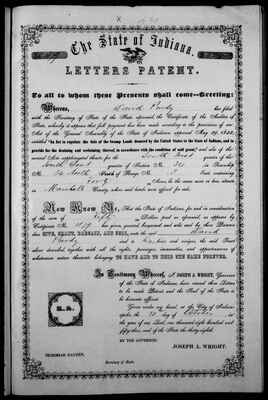 The State of Indiana.
LETTERS PATENT.
To all to whom these Presents shall come—Greeting:
Whereas, David Purdy has filed
with the Secretary of State of the State aforesaid the Certificate of the Auditor of
State, whereby it appears that full payment has been made according to the provisions of an
Act of the General Assembly of the State of Indiana, approved May 29, 1852,
entitled "An Act to regulate the Sale of the Swamp Lands donated by the United States to the State of Indiana, and to
provide for the draining and reclaiming thereof, in accordance with the condition of said grant;" and acts of the
General Assembly supplemental thereto for the South West quarter of the
quarter of Section No. in Township
No. North of Range No. East containing
Forty acres, be the same more or less, situate
in Marshall County, when said lands were offered for sale.
Now Know Ye, That the State of Indiana, for and in consideration
of the sum of Fifty Dollars paid as aforesaid, as appears by
Certificate No. has given, granted, bargained and sold, and by these Presents
does GIVE, GRANT, BARGAIN, AND SELL, unto the said David
Purdy and to his heirs and assigns, the said Tract
above described, together with all the rights, privileges, immunities, and appurtenances of
whatsoever nature thereunto belonging TO HAVE AND TO HOLD THE SAME FOREVER.
In Testimony Whereof, I, JOSEPH A. WRIGHT, Governor
of the State of Indiana, have caused these Letters
to be made Patent and the Seal of the State to
be hereunto affixed.
Given under my hand, at the City of Indianapolis
the day of October in
the year of our Lord, one thousand eight hundred and
fifty-three, and of the State the thirty-eighth.
BY THE GOVERNOR:
JOSEPH A. WRIGHT.
L. S.
NEHEMIAH HAYDEN,
Secretary of State.